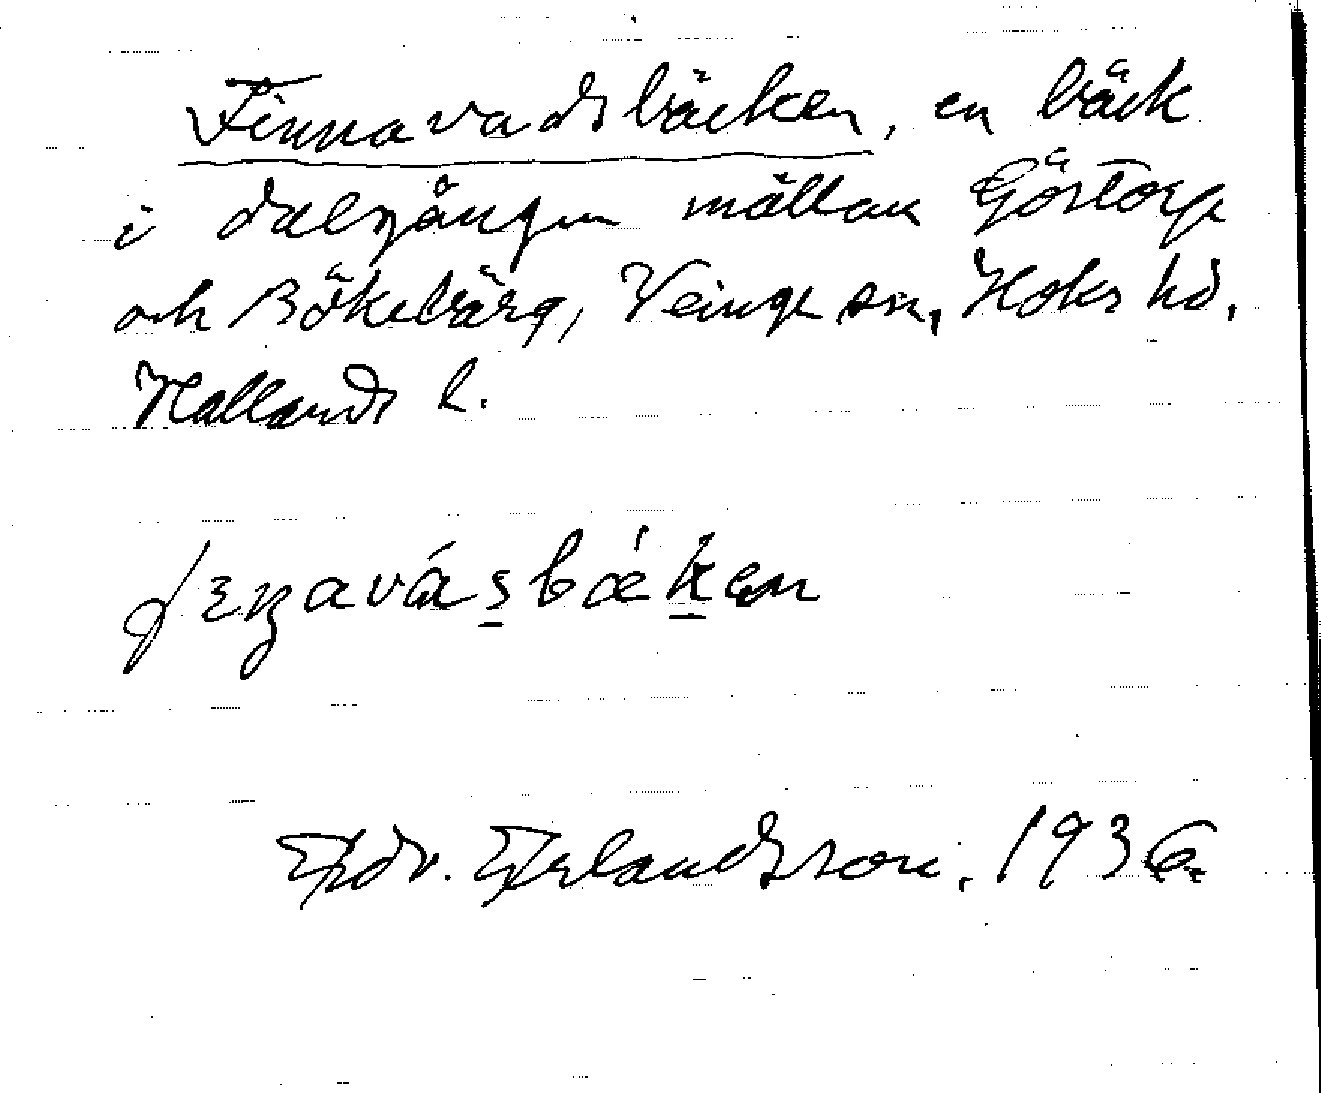 Finnavadsbäcken, en bäck
i dalgången mällan Göstorp
och Bökebärg, Veinge sn, Höks hd,
Hallands l.
Edv. Erlandsson, 1936.